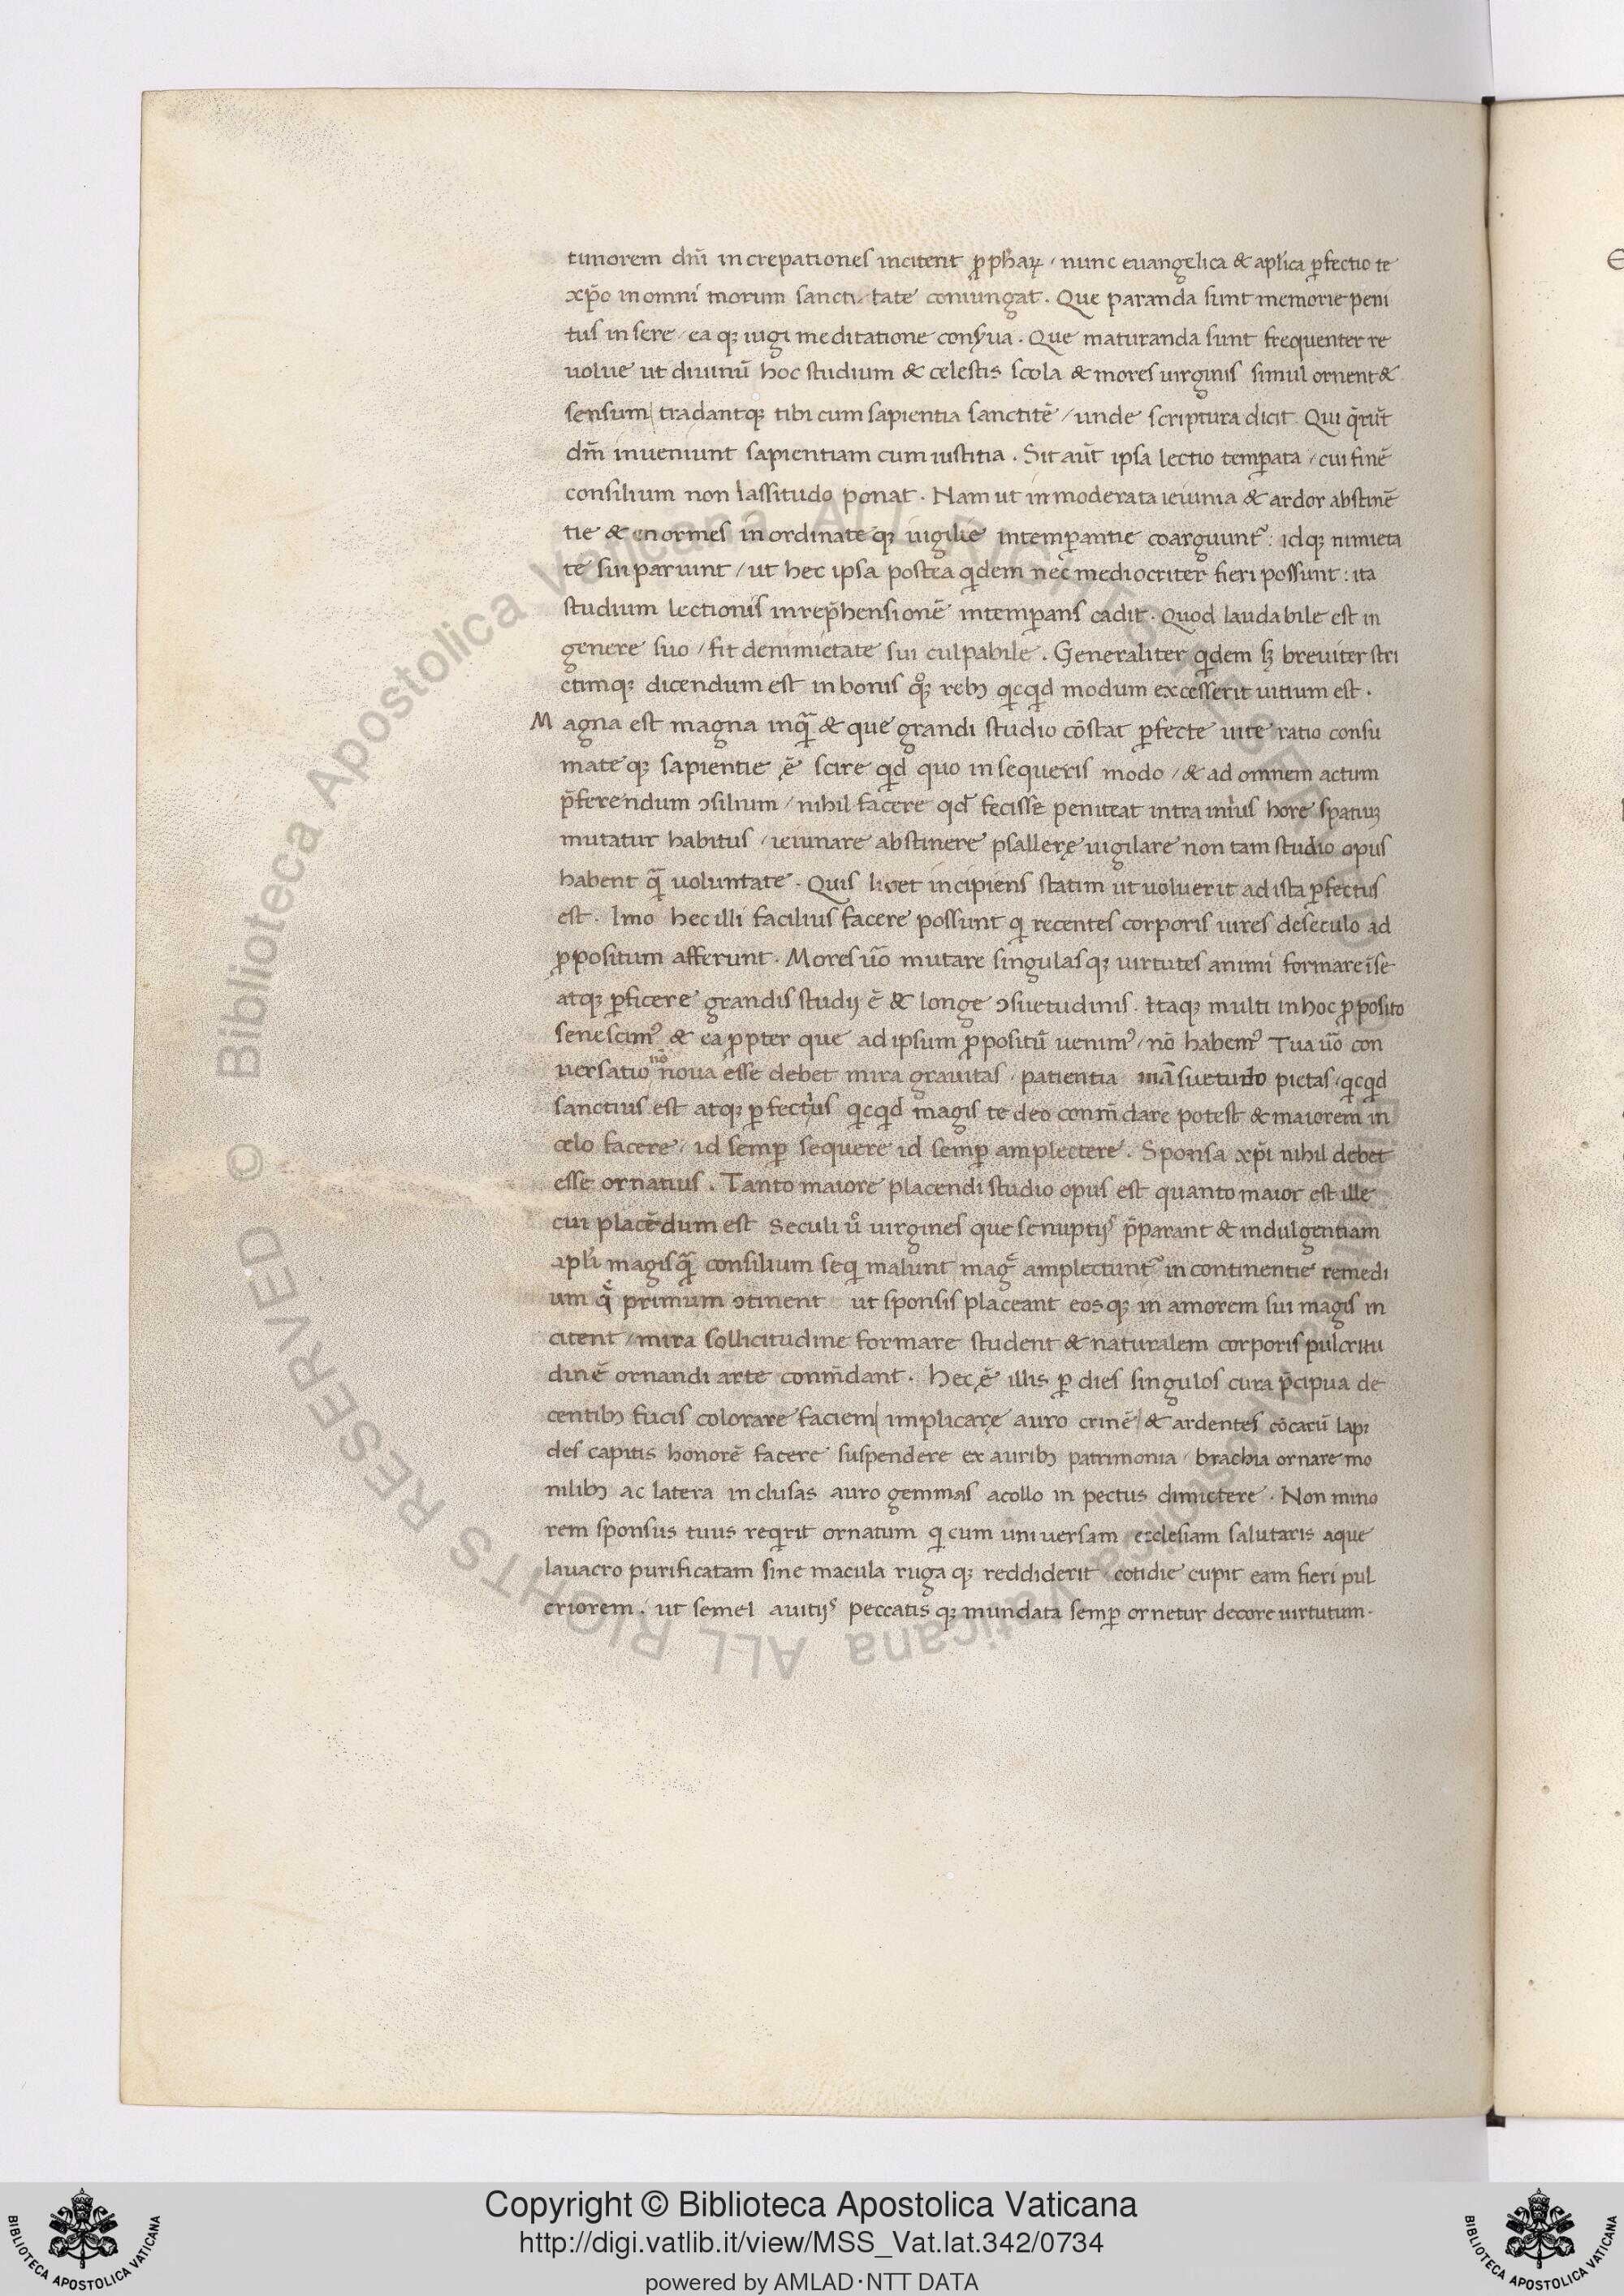 timorem dn̄i increpationes inciterit ꝓphaꝝ / nunc euangelica & aplica ꝑfectio te
xp̄o in omni morum sancti/tate coniungat. Que paranda sunt memorie peni
tus insere / ea qꝫ iugi meditatione conserua. Que maturanda sunt frequenter re
uolue ut diuinū hoc studium & celestis scola & mores uirginis simul ornent &
sensum| tradantqꝫ tibi cum sapientia sanctitē / unde scriptura dicit Qui q̄rūt
dm̄ inueniunt sapientiam cum iustitia. Sit aūt ipsa lectio temꝑata / cui finē
consilium non lassitudo ponat. Nam ut in moderata ieiunia & ardor abstinē
tie & enormes in ordinate qꝫ uigilie intemꝑantie coarguunt᷑: idqꝫ nimieta
te sui pariunt / ut hec ipsa postea qdem nec mediocriter fieri possunt: ita
studium lectionis in rep̄hensionē intemꝑans cadit. Quod laudabile est in
genere suo / fit de nimietate sui culpabile. Generaliter qdem sꝫ breuiter stri
ctimqꝫ dicendum est in bonis qͦqꝫ rebꝫ qcqd modum excesserit uitium est.
Magna est magna inqͣ & que grandi studio cōstat ꝑfecte uite ratio consu
mate qꝫ sapientie ē scire qd quo in sequeris modo / & ad omnem actum
p̄ferendum ɔsilium / nihil facere qd fecisse peniteat intra unius hore spatiuꝫ
mutatur habitus / ieiunare abstinere psallere uigilare non tam studio opus
habent qͣ uoluntate. Quis licet incipiens statim ut uoluerit ad ista ꝑfectus
est. Imo hec illi facilius facere possunt q recentes corporis uires de seculo ad
ꝓpositum afferunt. Mores uͦo mutare singulas qꝫ uirtutes animi formare ī se
atqꝫ ꝑficere grandis studij ē & longe ɔsuetudinis. Itaqꝫ multi in hoc ꝓposito
senescimꝰ & ea ꝓpter que ad ipsum ꝓpositū uenimꝰ / nō habemꝰ Tua uͦo con
uersatio nō noua esse debet mira grauitas / patientia mā suetudo pietas / qcqd
sanctius est atqꝫ ꝑfectius qcqd magis te deo conm̄dare potest & maiorem in
celo facere / id semꝑ sequere id semꝑ amplectere. Sponsa xp̄i nihil debet
esse ornatius. Tanto maiore placendi studio opus est quanto maior est ille
cui placēdum est Seculi uͦ uirgines que se nuptijs p̄parant & indulgentiam
apl̄i magis qͣ consilium seq malunt mag͛ amplectunt᷑ in continentie remedi
um q͛ primum ɔtinent ut sponsis placeant eos qꝫ in amorem sui magis in
citent / mira sollicitudine formare student & naturalem corporis pulcritu
dinē ornandi arte conm̄dant. Hec ē illis ꝑ dies singulos cura p̄cipua de
centibꝫ fucis colorare faciem| implicare auro crinē| & ardentes cōcauū lapi
des capitis honorē facere suspendere ex auribꝫ patrimonia / brachia ornare mo
nilibꝫ ac latera inclusas auro gemmas a collo in pectus dimictere. Non mino
rem sponsus tuus reqrit ornatum q cum uniuersam ecclesiam salutaris aque
lauacro purificatam sine macula ruga qꝫ reddiderit / cotidie cupit eam fieri pul
criorem. ut semel a uitijs peccatis qꝫ mundata semꝑ ornetur decore uirtutum.
© Biblioteca Apostolica Vaticana ALL RIGHTS RESERVED © Biblioteca Apostolica Vaticana ALL RIGHTS RESERVED
Copyright © Biblioteca Apostolica Vaticana
http://digi.vatlib.it/view/MSS_Vat.lat.342/0734
powered by AMLAD·NTT DATA
BIBLIOTECA APOSTOLICA VATICANA
BIBLIOTECA APOSTOLICA VATICANA